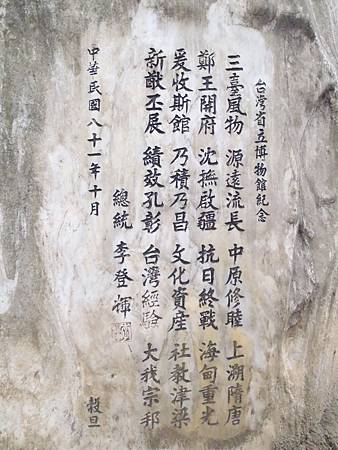 台灣省立博物館紀念
三臺風物 源遠流長 中原修睦 上溯隋唐
鄭王開府 沈撫啟疆 抗日終戰 海甸重光
爰收斯館 乃積乃昌 文化資産 社教津梁
新猷丕展 績效孔彰 台灣經驗 大我宗邦
總統 李登輝
中華民國八十一年十月 穀旦